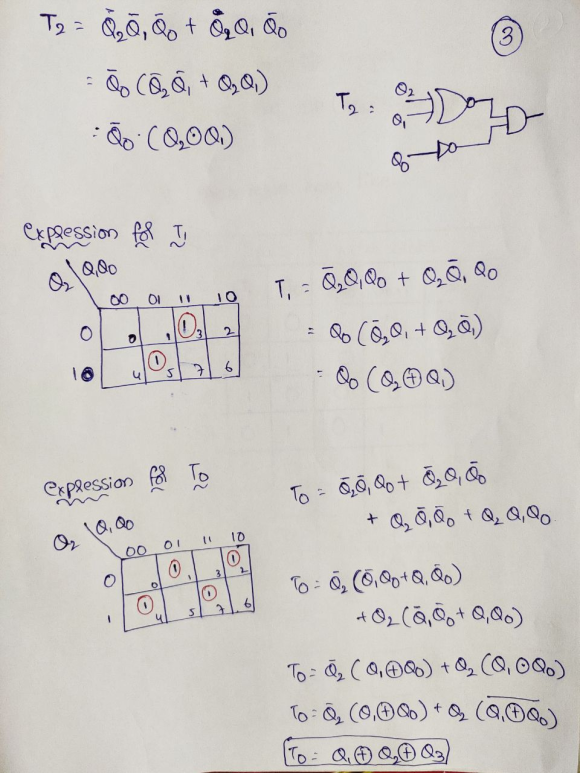 T₂ = Q̄₂Q̄₁Q̄₀ + Q̄₂Q₁Q̄₀
3
= Q̄₀(Q̄₂Q̄₁ + Q₂Q₁)
= Q̄₀·(Q₂⊙Q₁)
T₂ =
Q₂
Q₁
Q₀
expression for T₁
Q₂ Q₁Q₀
00 01 11 10
0 0 1 1 3 2
1 4 1 5 7 6
T₁ = Q̄₂Q₁Q₀ + Q₂Q̄₁Q₀
= Q₀(Q̄₂Q₁ + Q₂Q̄₁)
= Q₀(Q₂⊕Q₁)
expression for T₀
Q₂ Q₁Q₀
00 01 11 10
0 0 1 1 3 1 2
1 1 4 5 1 7 6
T₀ = Q̄₂Q̄₁Q₀ + Q̄₂Q₁Q̄₀
+ Q₂Q̄₁Q̄₀ + Q₂Q₁Q₀
T₀ = Q̄₂(Q̄₁Q₀ + Q₁Q̄₀)
+ Q₂(Q̄₁Q̄₀ + Q₁Q₀)
T₀ = Q̄₂(Q₁⊕Q₀) + Q₂(Q₁⊙Q₀)
T₀ = Q̄₂(Q₁⊕Q₀) + Q₂(\overline{Q₁⊕Q₀})
T₀ = Q₁⊕Q₂⊕Q₃